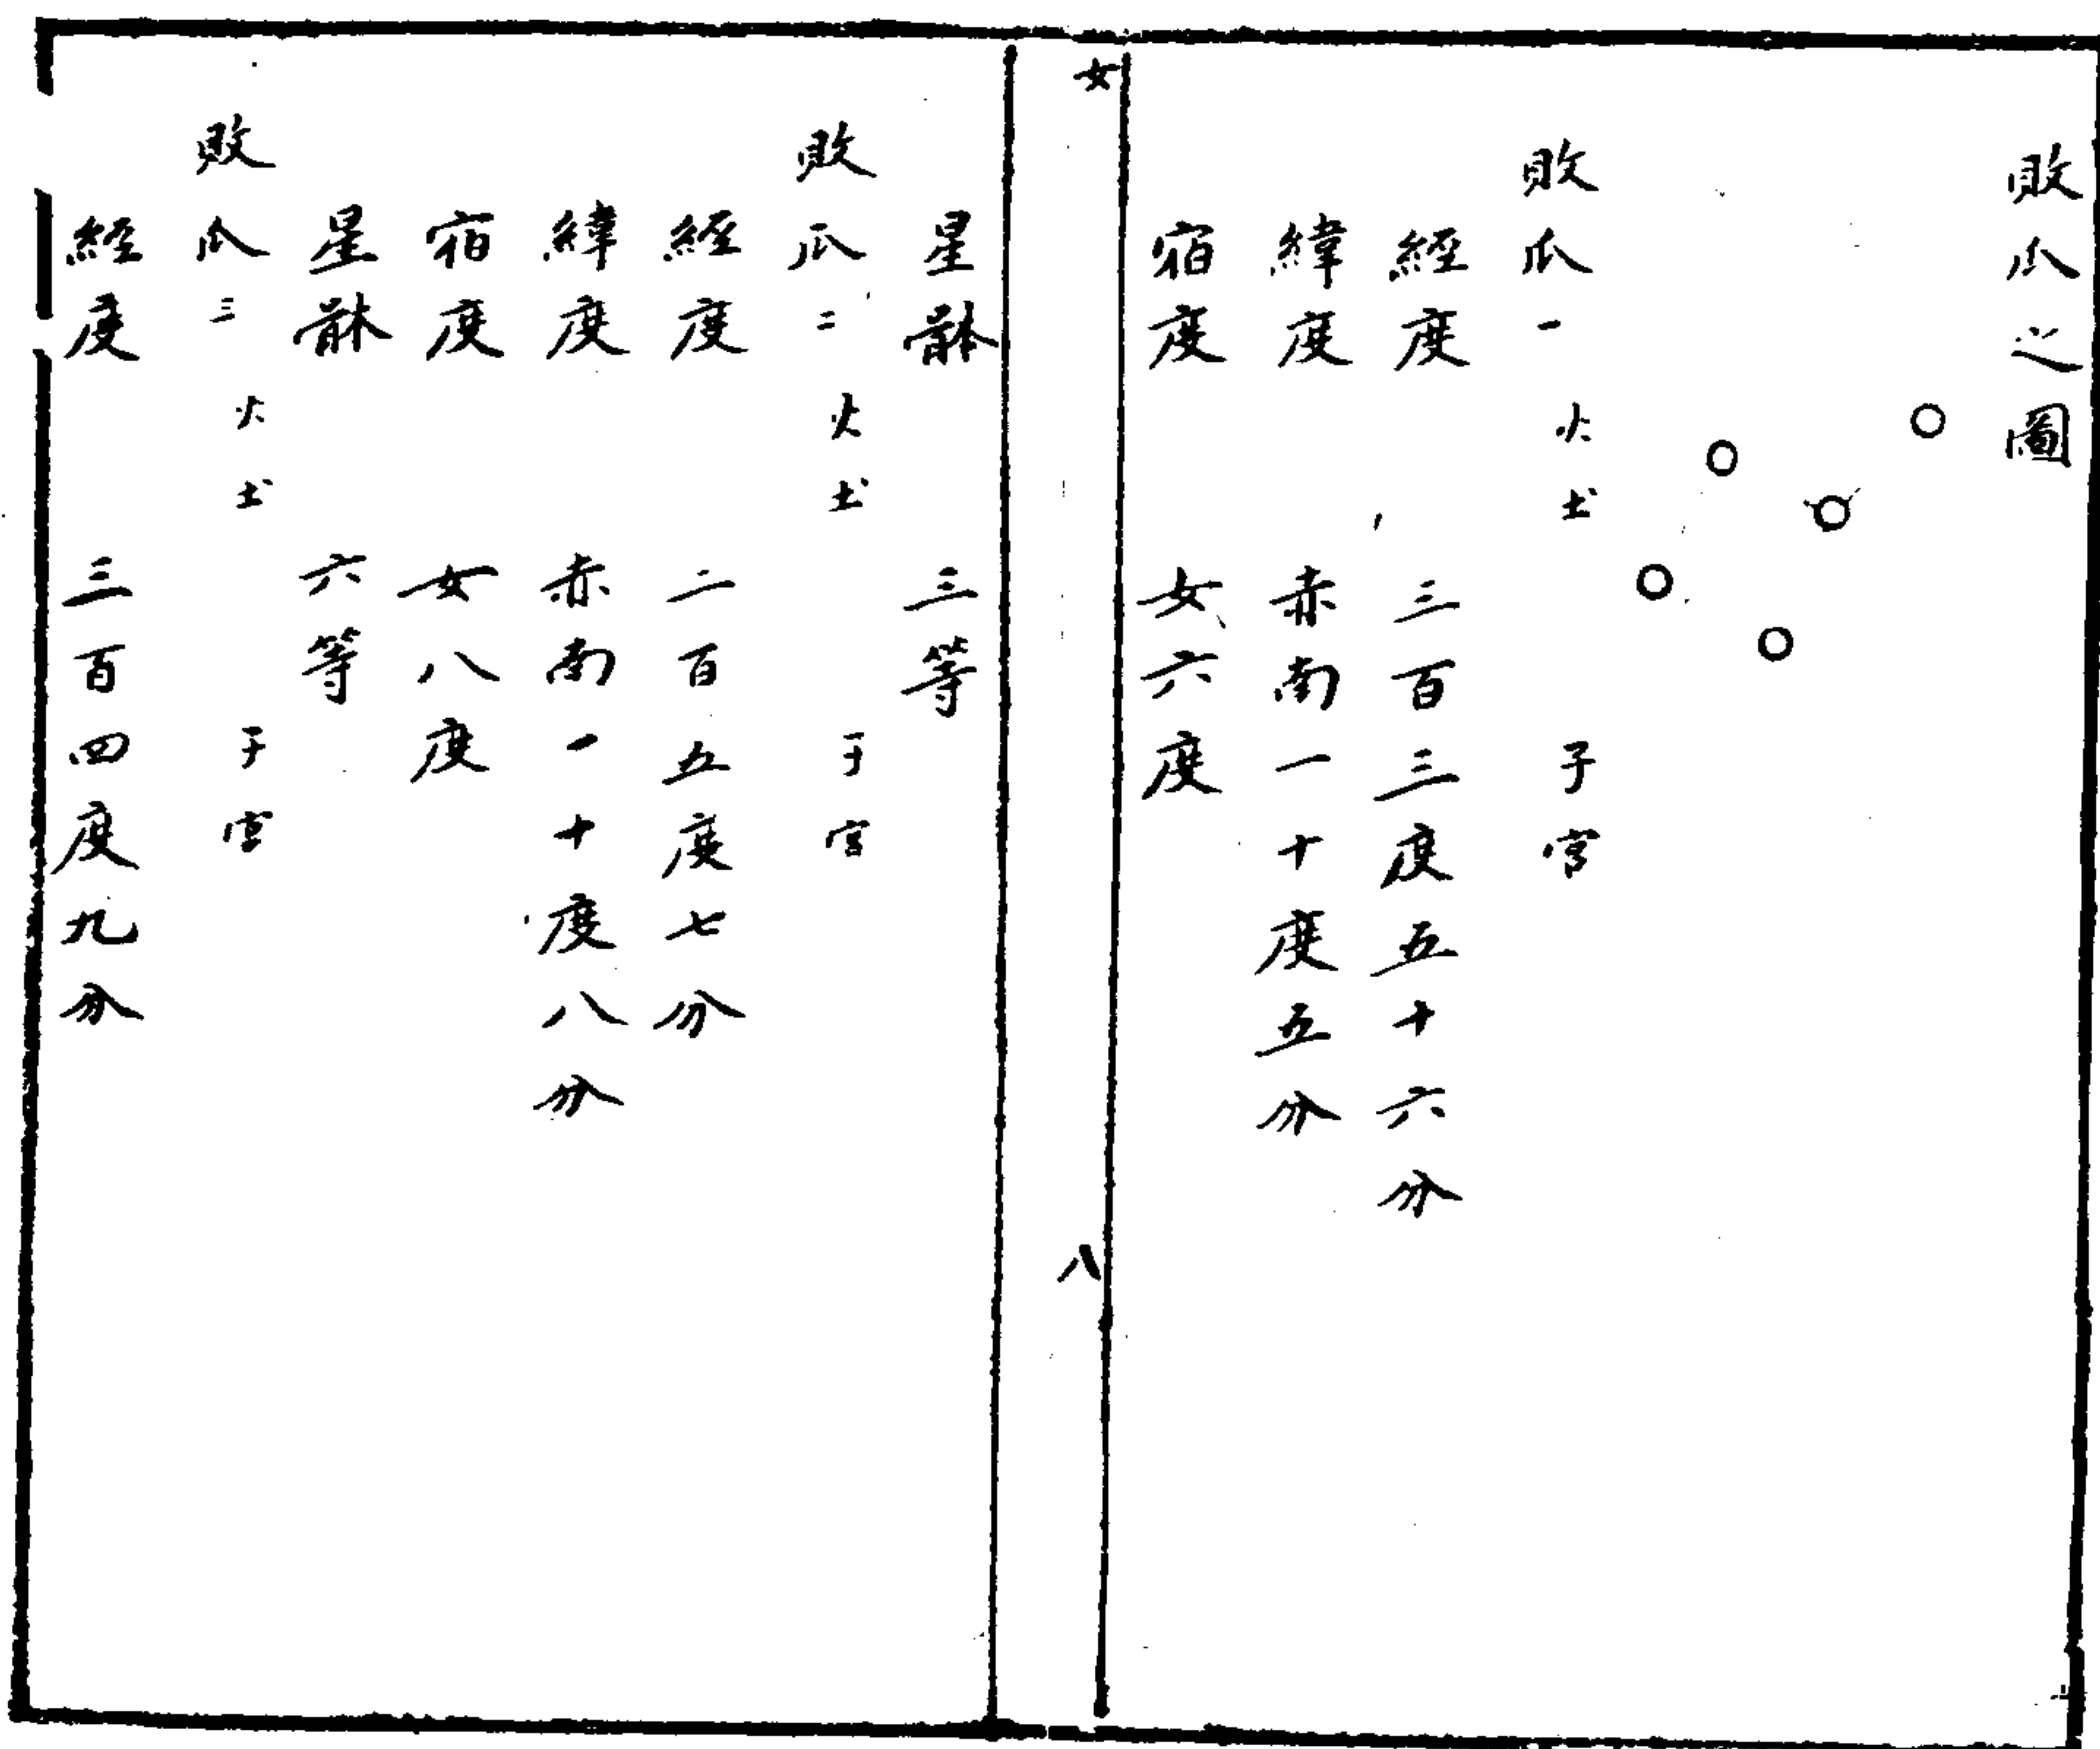 敗瓜之圖
敗瓜一 火土 子宮
經度 三百三度五十六分
緯度 赤南一十度五分
宿度 女六度
女 八
星體 三等
敗瓜二 火土 子宮
經度 二百五度七分
緯度 赤南一十度八分
宿度 女八度
星體 六等
敗瓜三 火土 子宮
經度 三百四度九分